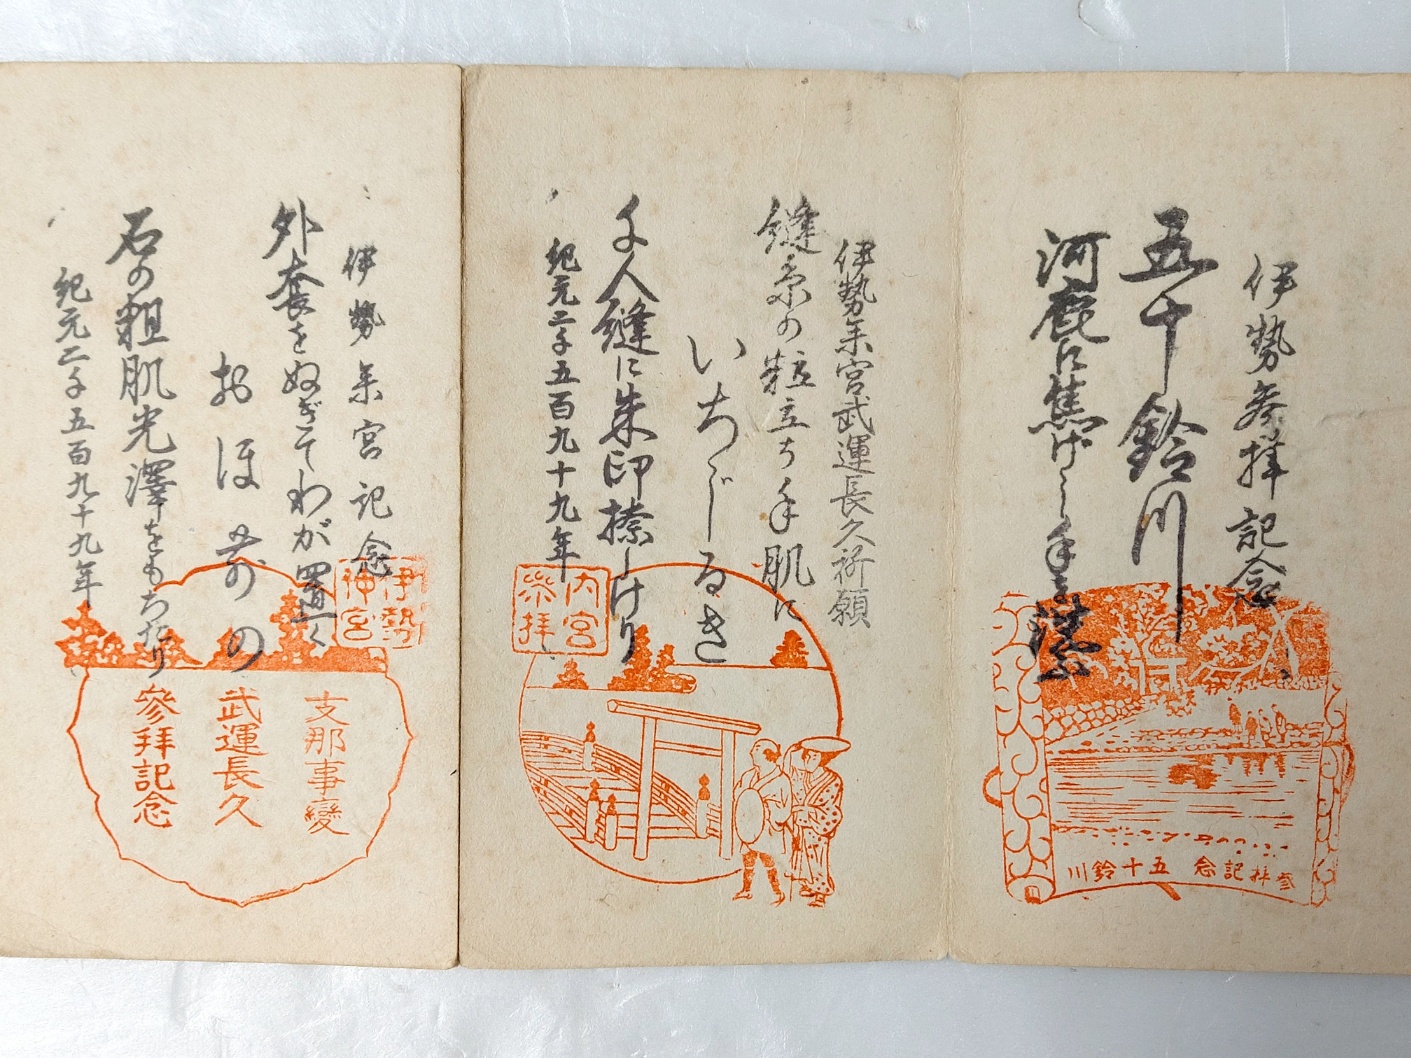 伊勢参拝記念
五十鈴川
河鹿に焦げし手を
参拝記念 五十鈴川
伊勢参宮武運長久祈願
縫糸の粒立ち手肌に
いちじるき
千人縫に朱印捺しけり
紀元二千五百九十九年
内宮
参拝
伊勢参宮記念
外套をぬぎてわが置く
おほ前の
石の粗肌光澤をもちたり
紀元二千五百九十九年
伊勢
神宮
支那事變
武運長久
參拜記念